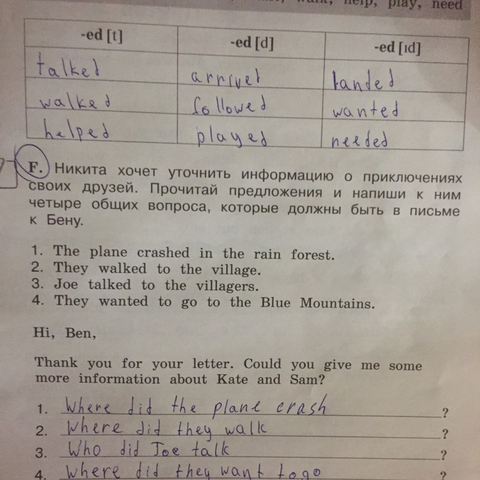 walk, help, play, need
-ed [t] -ed [d] -ed [ɪd]
talked arrived landed
walked followed wanted
helped played needed
F. Никита хочет уточнить информацию о приключениях
своих друзей. Прочитай предложения и напиши к ним
четыре общих вопроса, которые должны быть в письме
к Бену.
1. The plane crashed in the rain forest.
2. They walked to the village.
3. Joe talked to the villagers.
4. They wanted to go to the Blue Mountains.
Hi, Ben,
Thank you for your letter. Could you give me some
more information about Kate and Sam?
1. Where did the plane crash ?
2. Where did they walk ?
3. Who did Joe talk ?
4. Where did they want to go ?